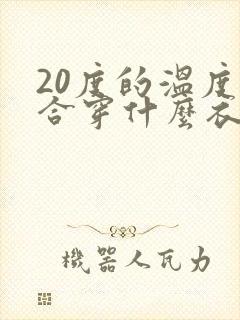 20度的溫度
合穿什麼衣
機器人瓦力